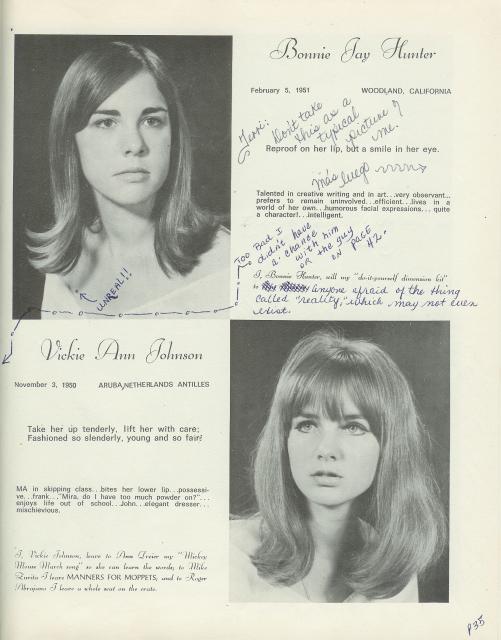 Bonnie Jay Hunter
February 5, 1951 WOODLAND, CALIFORNIA
Terri: Don't take
this as a
typical
picture of
me.
Reproof on her lip, but a smile in her eye.
más luego
Talented in creative writing and in art...very observant...
prefers to remain uninvolved...efficient...lives in a
world of her own...humorous facial expressions... quite
a character!...intelligent.
TOO Bad I
didn't have
a chance
with him
OR the guy
ON PAGE
#2.
UNREAL!!
I, Bonnie Hunter, will my "do-it-yourself dimension kit"
to anyone afraid of the thing
called "reality," which may not even
exist.
Vickie Ann Johnson
November 3, 1950 ARUBA, NETHERLANDS ANTILLES
Take her up tenderly, lift her with care;
Fashioned so slenderly, young and so fair!
MA in skipping class...bites her lower lip...possessi-
ve...frank..."Mira, do I have too much powder on?"...
enjoys life out of school...John...elegant dresser...
mischievious.
I, Vickie Johnson, leave to Ann Dreier my "Mickey
Mouse March song" so she can learn the words; to Mike
Zurita I leave MANNERS FOR MOPPETS, and to Roger
Abrajano I leave a whole seat on the crate.
P35